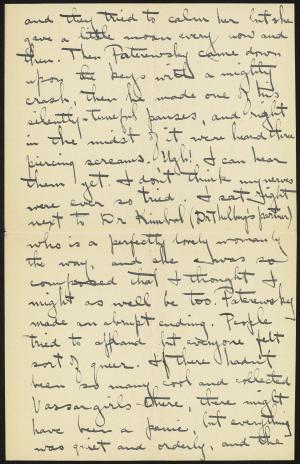 and they tried to calm her but she
gave a little moan every now and
then. Then Paterewsky came down
upon the keys with a mighty
crash, then he made one of his
silently-tuneful pauses, and right
in the midst of it were heard three
piercing screams. Ugh! I can hear
them yet. I don't think my nerves
were ever so tried. I sat right
next to Dr Kimbal (Dr Thelberg's partner)
who is a perfectly lovely woman by
the way, and she was so
composed that I thought I
might as well be too. Paterewskey
made an abrupt ending. People
tried to applaud but everyone felt
sort of queer. If there hadn't
been so many cool and collected
Vassar girls there, there might
have been a panic, but everything
was quiet and orderly, and the